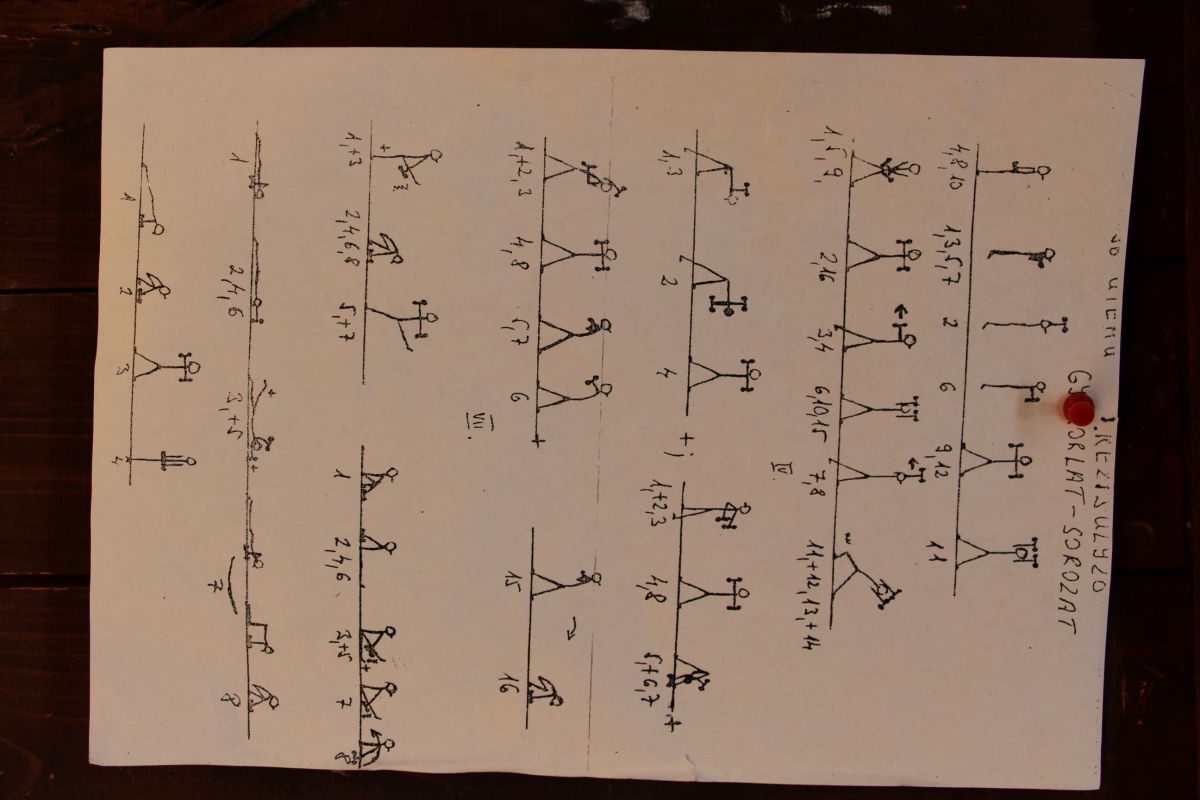 KÉZISULYZÓ
GY ORLAT-SOROZAT
4,8,10 1,3,5,7 2 6 9,12 11
1,5,9, 2,16 3,4 6,10,15 7,8 11,+12,13,+14
IV.
1,3 2 4 +
1,+2,3 4,8 5,+6,7 +
1,+2,3 4,8 5,7 6 + 15 16
VII.
1,+3 2,4,6,8 5,+7 1 2,4,6 3,+5 7 8
1 2,4,6 3,+5 7 8
1 2 3 4